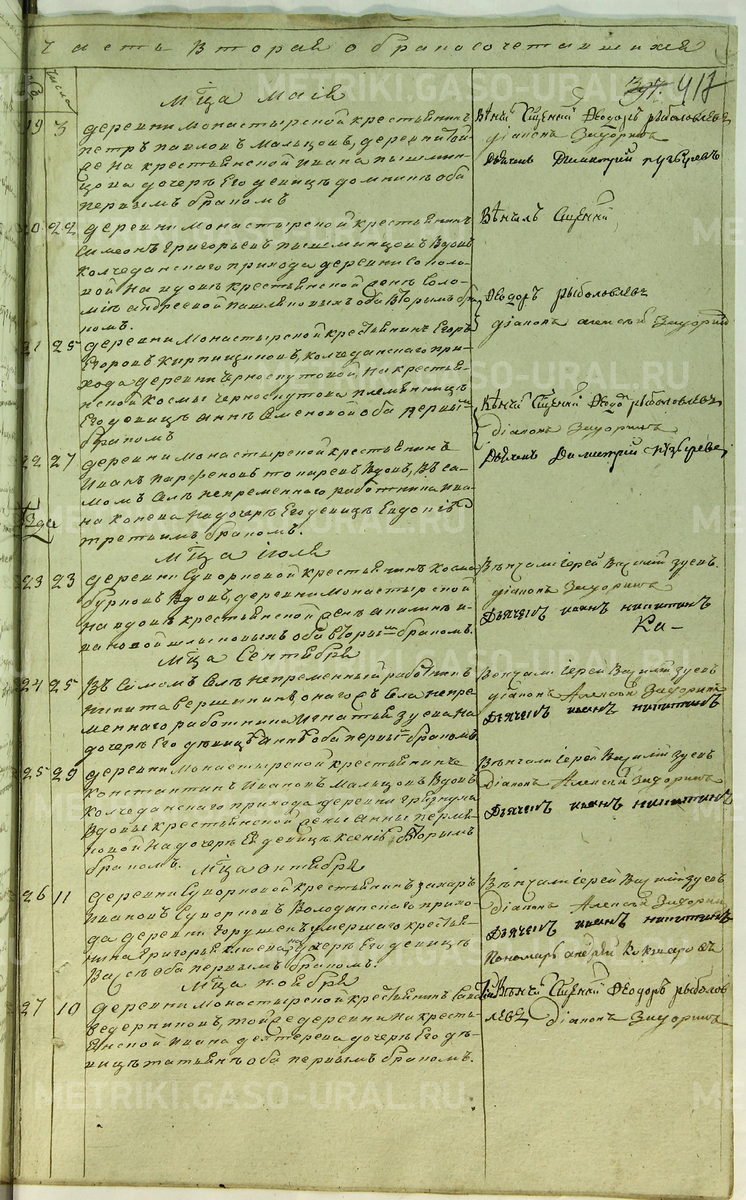 Часть вторая о бракосочетавшихся
числа
417
Мца маія
19 3 деревни Монастырской крестьянинъ
Петръ Павловъ Мальцовъ, деревни той
же на крестьянской Ивана Пышмин-
цова дочерѣ его девицѣ Домнинѣ оба
первымъ бракомъ
Вѣнч Сщенникъ Ѳеодоръ Рыболовлевъ
діаконъ Зидоринъ
Дьячекъ Димитрий Пузыревъ
20 22 деревни Монастырской крестьянинъ
Симеонъ Григорьевъ Пышминцовъ вдовъ
Колчеданского прихода деревни Соколо-
вой на вдовѣ крестьянской женѣ Соло-
міѣ Андреевой Пашляковыхъ оба вторымъ бра-
комъ.
Вѣнчалъ Сщенникъ
Ѳеодоръ Рыболовлевъ
діаконъ Алексѣй Зидоринъ
21 25 деревни Монастырской крестьянинъ Егоръ
Егоровъ Кирпищиковъ, Колчеданского при-
хода деревни Черноскутовой, на крестьян-
ской Космы Черноскутова племянницѣ
его девицѣ Аннѣ Семеновой оба первымъ
бракомъ
Вѣнчалъ Сщенникъ Ѳеодоръ Рыболовлевъ
діаконъ Зидоринъ
Дьячекъ Димитрий Пузыревъ
22 27 деревни Монастырской крестьянинъ
Иванъ Парфеновъ Токаревъ вдовъ, въ са-
момъ селѣ непременного работника Ива-
на Конева на дочерѣ его девицѣ Евдокіѣ
третьимъ бракомъ.
Мца іюля
23 23 деревни Суворковой крестьянинъ Косма
Бурковъ вдовъ, деревни Монастырской
на вдовѣ крестьянской женѣ Акилинѣ И-
вановой Шлыковыхъ оба вторымъ бракомъ.
Вѣнчали іерей Василій Зуевъ.
діаконъ Зидоринъ
Дьячекъ Иванъ Никитинъ
Ка-
Мца сентября
24 25 Въ самомъ селѣ непременный работникъ
Никита Вершининъ онаго жъ села непре-
менного работника Игнатья Зуева на
дочерѣ его дѣвицѣ Аннѣ оба первымъ бракомъ.
Вѣнчали іерей Василій Зуевъ
діаконъ Алексѣй Зидоринъ
Дьячекъ Иванъ Никитинъ
25 29 деревни Монастырской крестьянинъ
Константинъ Ивановъ Мальцовъ вдовъ
Колчеданского прихода деревни
вдовы крестьянской жены Анны Перм-
ковой на дочерѣ её девицѣ Ксеніѣ вторымъ
бракомъ.
Вѣнчали іерей Василій Зуевъ
діаконъ Алексѣй Зидоринъ
Дьячекъ Иванъ Никитинъ
Мца октября
26 11 деревни Суворковой крестьянинъ Захаръ
Ивановъ Суворковъ Володинского прихо-
да деревни умершаго крестья-
нина Григорья на дочерѣ его девицѣ
Вассѣ оба первымъ бракомъ.
Вѣнчали іерей Василій Зуевъ
діаконъ Алексѣй Зидоринъ
Дьячекъ Иванъ Никитинъ
Пономарь Андрей Кокшаровъ
Мца ноября
27 10 деревни Монастырской крестьянинъ
Ведерниковъ, той же деревни на кресть-
янской Ивана Дехтерева дочерѣ его дѣ-
вицѣ Татьянѣ оба первымъ бракомъ.
Вѣнч Сщенникъ Ѳеодоръ Рыболов-
левъ діаконъ Зидоринъ
METRIKI.GASO-URAL.RU